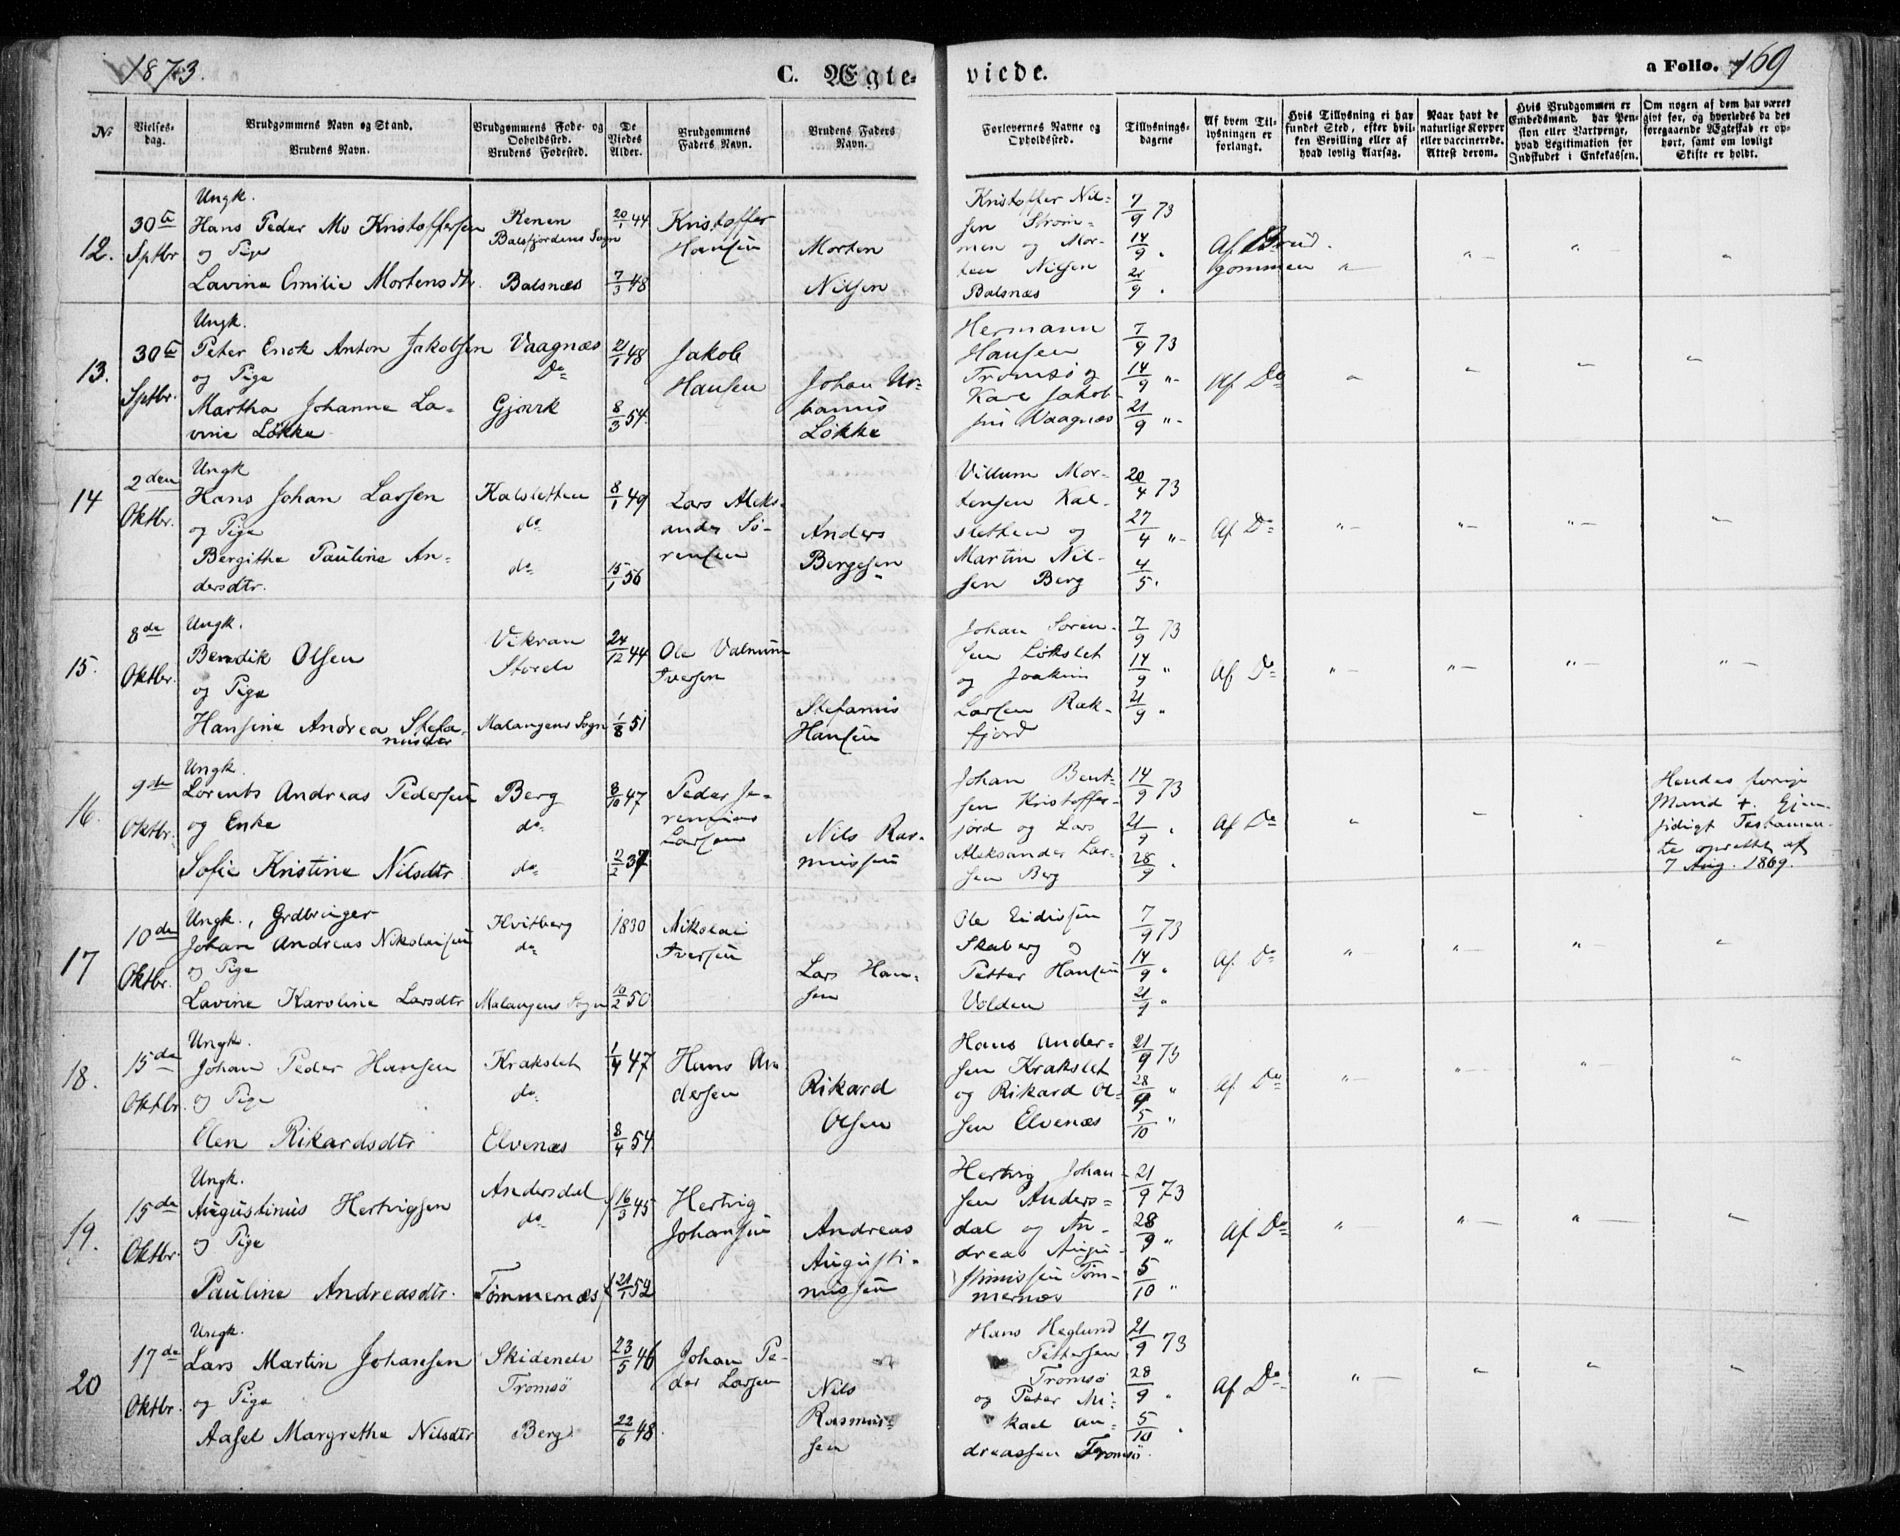 1873.
C. Ægte-
viede.
a Folio. 169
No
Vielses-
dag.
Brudgommens Navn og Stand.
Brudens Navn.
Brudgommens Føde- og
Opholdssted.
Brudens Fødested.
De
Viedes
Alder.
Brudgommens
Faders Navn.
Brudens Faders
Navn.
Forlovernes Navne og
Opholdssted.
Tillysnings-
dagene
Af hvem Til-
lysningen er
forlangt.
Hvis Tillysning ei har
fundet Sted, efter hvil-
ken Bevilling eller af
hvad lovlig Aarsag.
Naar havt de
naturlige Kopper
eller vaccinerede.
Attest derom.
Hvis Brudgommen er
Embedsmand, har Pen-
sion eller Vartpenge,
hvad Legitimation for
Indskudet i Enkekassen.
Om nogen af dem har været
givt før, og hvorledes da det
foregaaende Ægteskab er op-
hørt, samt om lovligt
Skifte er holdt.
12.
30te
Sptbr
Ungk.
Hans Peder Mo Kristoffersen
og Pige
Lavina Emilie Mortensdtr.
Renen
Balsfjordens Sogn
Balsnæs
20/1 44
7/3 48
Kristoffer
Hansen
Morten
Nilsen
Kristoffer Nil-
sen Strøm-
men og Mor-
ten Nilsen
Balsnæs
7/9 73
14/9 "
21/9 "
Af Brud-
gommen
13.
30te
Sptbr.
Ungk.
Peter Enok Anton Jakobsen
og Pige
Martha Johanna La-
vine Løkke
Vaagnæs
Do
Gjøvik
21/1 48
8/3 54.
Jakob
Hansen
Johan Ur-
banus
Løkke
Hermann
Hansen
Tromsø og
Karl Jakob-
sen Vaagnæs
7/9 73
14/9 "
21/9 "
Af Do
14
2den
Oktbr.
Ungk
Hans Johan Larsen
og Pige
Bergitha Pauline An-
dersdtr.
Kalsletten
do
do
8/1 49
15/1 56
Lars Aleks-
ander Sø-
rensen
Anders
Bergesen
Villum Mor-
tensen Kal-
sletten og
Martin Nil-
sen Berg
20/4 73
27/4 "
4/5 "
Af Do
15.
8de
Oktbr.
Ungk.
Bendik Olsen
og Pige
Hansine Andrea Stefa-
nusdtr
Vikran
Malangens Sogn
24/12 44
1/8 51
Ole
Iversen
Stefanus
Hansen
Johan Søren-
sen Løkslet
og Joakim
Larsen Rak-
fjord
7/9 73
14/9 "
21/9 "
Af Do
16.
9de
Oktbr.
Ungk.
Lorents Andreas Pedersen
og Enke
Sofie Kristine Nilsdtr
Berg
do
do
8/10 47
2/2 37
Peder Je-
remias
Larsen
Nils Ras-
mussen
Johan Bent-
sen Kristoffer-
jord og Lars
Aleksander Lar-
sen Berg
14/9 73
21/9 "
28/9 "
Af Do
Hendes forrige
Mand +. Gjen-
sidigt Testamen-
te oprettet af
7 Aug. 1869.
17
10de
Oktbr.
Ungk., Grdbruger
Johan Andreas Nikolaisen
og Pige
Lavine Karoline Larsdtr
Hvitberg
do
Malangens Sogn
1830
10/2 50
Nikolai
Iversen
Lars Han-
sen
Ole
Skaberg og
Petter Hansen
Volden
7/9 73
14/9 "
21/9 "
Af. Do
18.
15de
Oktbr.
Ungk.
Johan Peder Hansen
og Pige
Elen Rikardsdtr
Krakslet
do
Elvenæs
1/4 47
8/4 54.
Hans An-
dersen
Rikard
Olsen
Hans Ander-
sen Krakslet
og Rikard Ol-
sen Elvenæs
21/9 73
28/9 "
5/10 "
Af Do
19.
15de
Oktbr.
Ungk.
Augustinus Hertvigsen
og Pige
Pauline Andreasdtr.
Andersdal
do
Tømmernæs
16/3 45
21/1 52
Hertvig
Johansen
Andreas
Augusti-
nussen
Hertvig Johan-
sen Anders-
dal og An-
dreas Augu-
stinussen Tøm-
mernæs
21/9 73
28/9 "
5/10 "
Af Do
20
17de
Oktbr.
Ungk.
Lars Martin Johansen
og Pige
Aasel Margrethe Nilsdtr
Skidenelv
Tromsø
Berg
23/5 46
22/6 48.
Johan Pe-
der Larsen
Nils
Rasmus-
sen
Hans Heglund
Pettersen
Tromsø
og Peter Mi-
kael An-
dreassen Tromsø.
21/9 73
28/9 "
5/10 "
Af Do